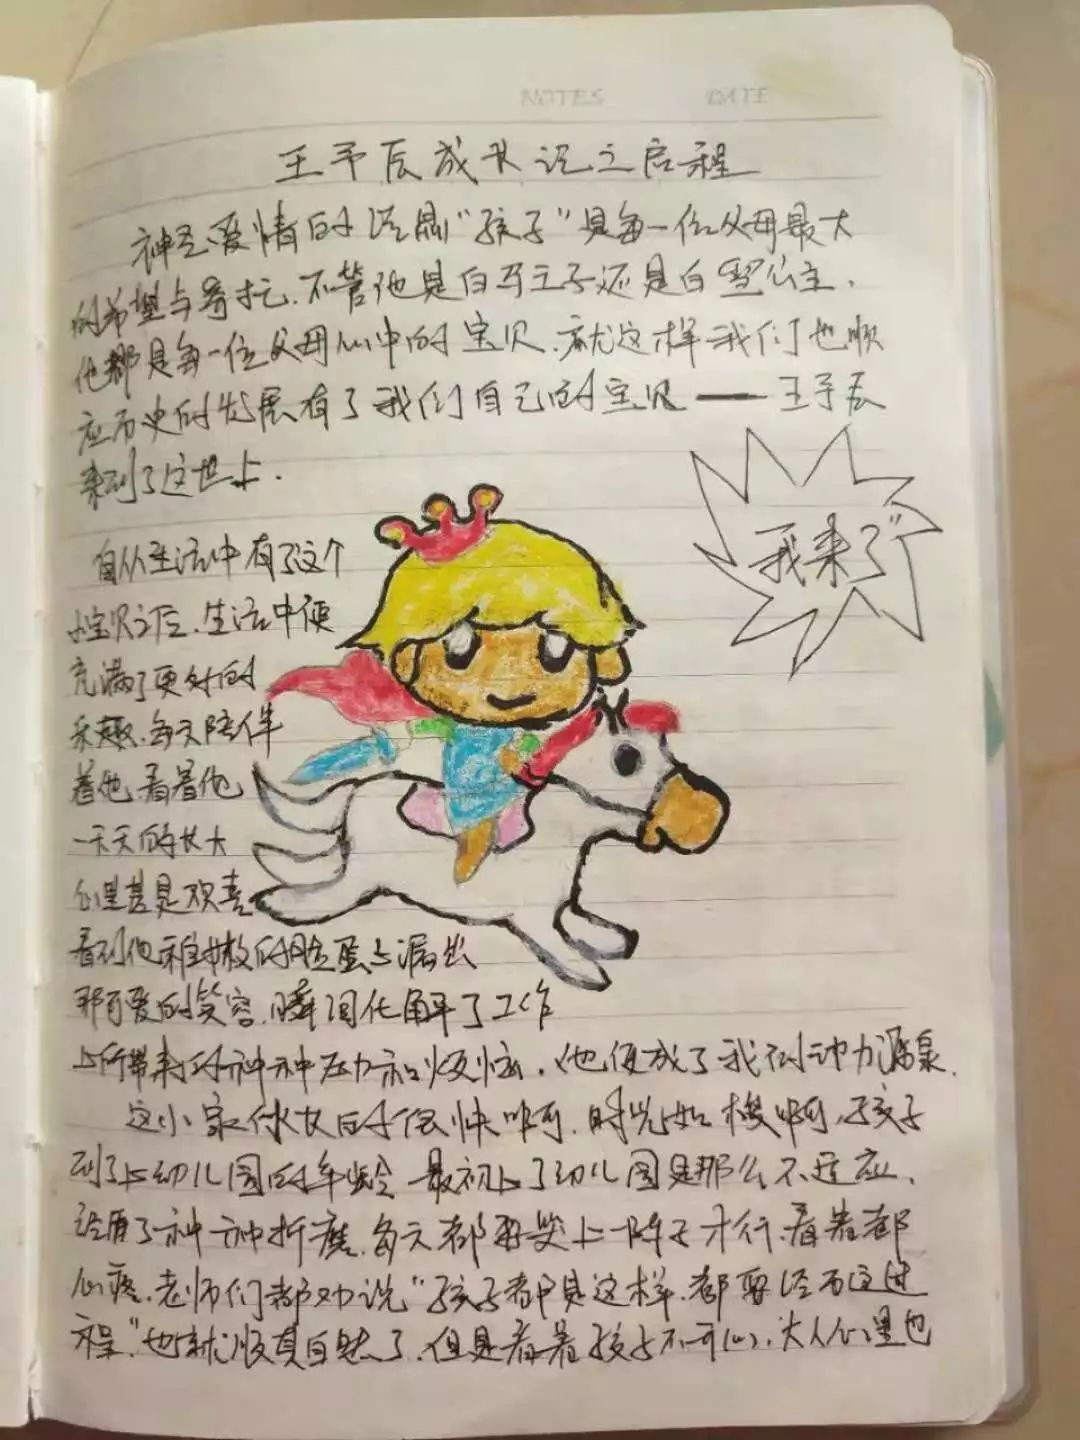 NOTES DATE
王予辰成长记之启程
神圣爱情的结晶"孩子"是每一位父母最大
的希望与寄托.不管他是白马王子还是白雪公主.
他都是每一位父母心中的宝贝.就这样我们也顺
应历史的发展有了我们自己的宝贝——王予辰
来到了这世上.
"我来了"
自从生活中有了这个
小宝贝之后.生活中便
充满了更多的
乐趣.每天陪伴
着他.看着他
一天天的长大
心里甚是欢喜
看到他稚嫩的脸蛋上漏出
那可爱的笑容.瞬间化解了工作
上所带来的种种压力和烦恼.他便成了我们动力源泉.
这小家伙长的很快啊.时光如梭啊.孩子
到了上幼儿园的年龄 最初上了幼儿园是那么不适应.
经历了种种折磨.每天都要哭上一阵子才行.看着都
心疼.老师们都劝说"孩子都是这样.都要经历这过
程."也就顺其自然了.但是看着孩子不开心.大人心里也